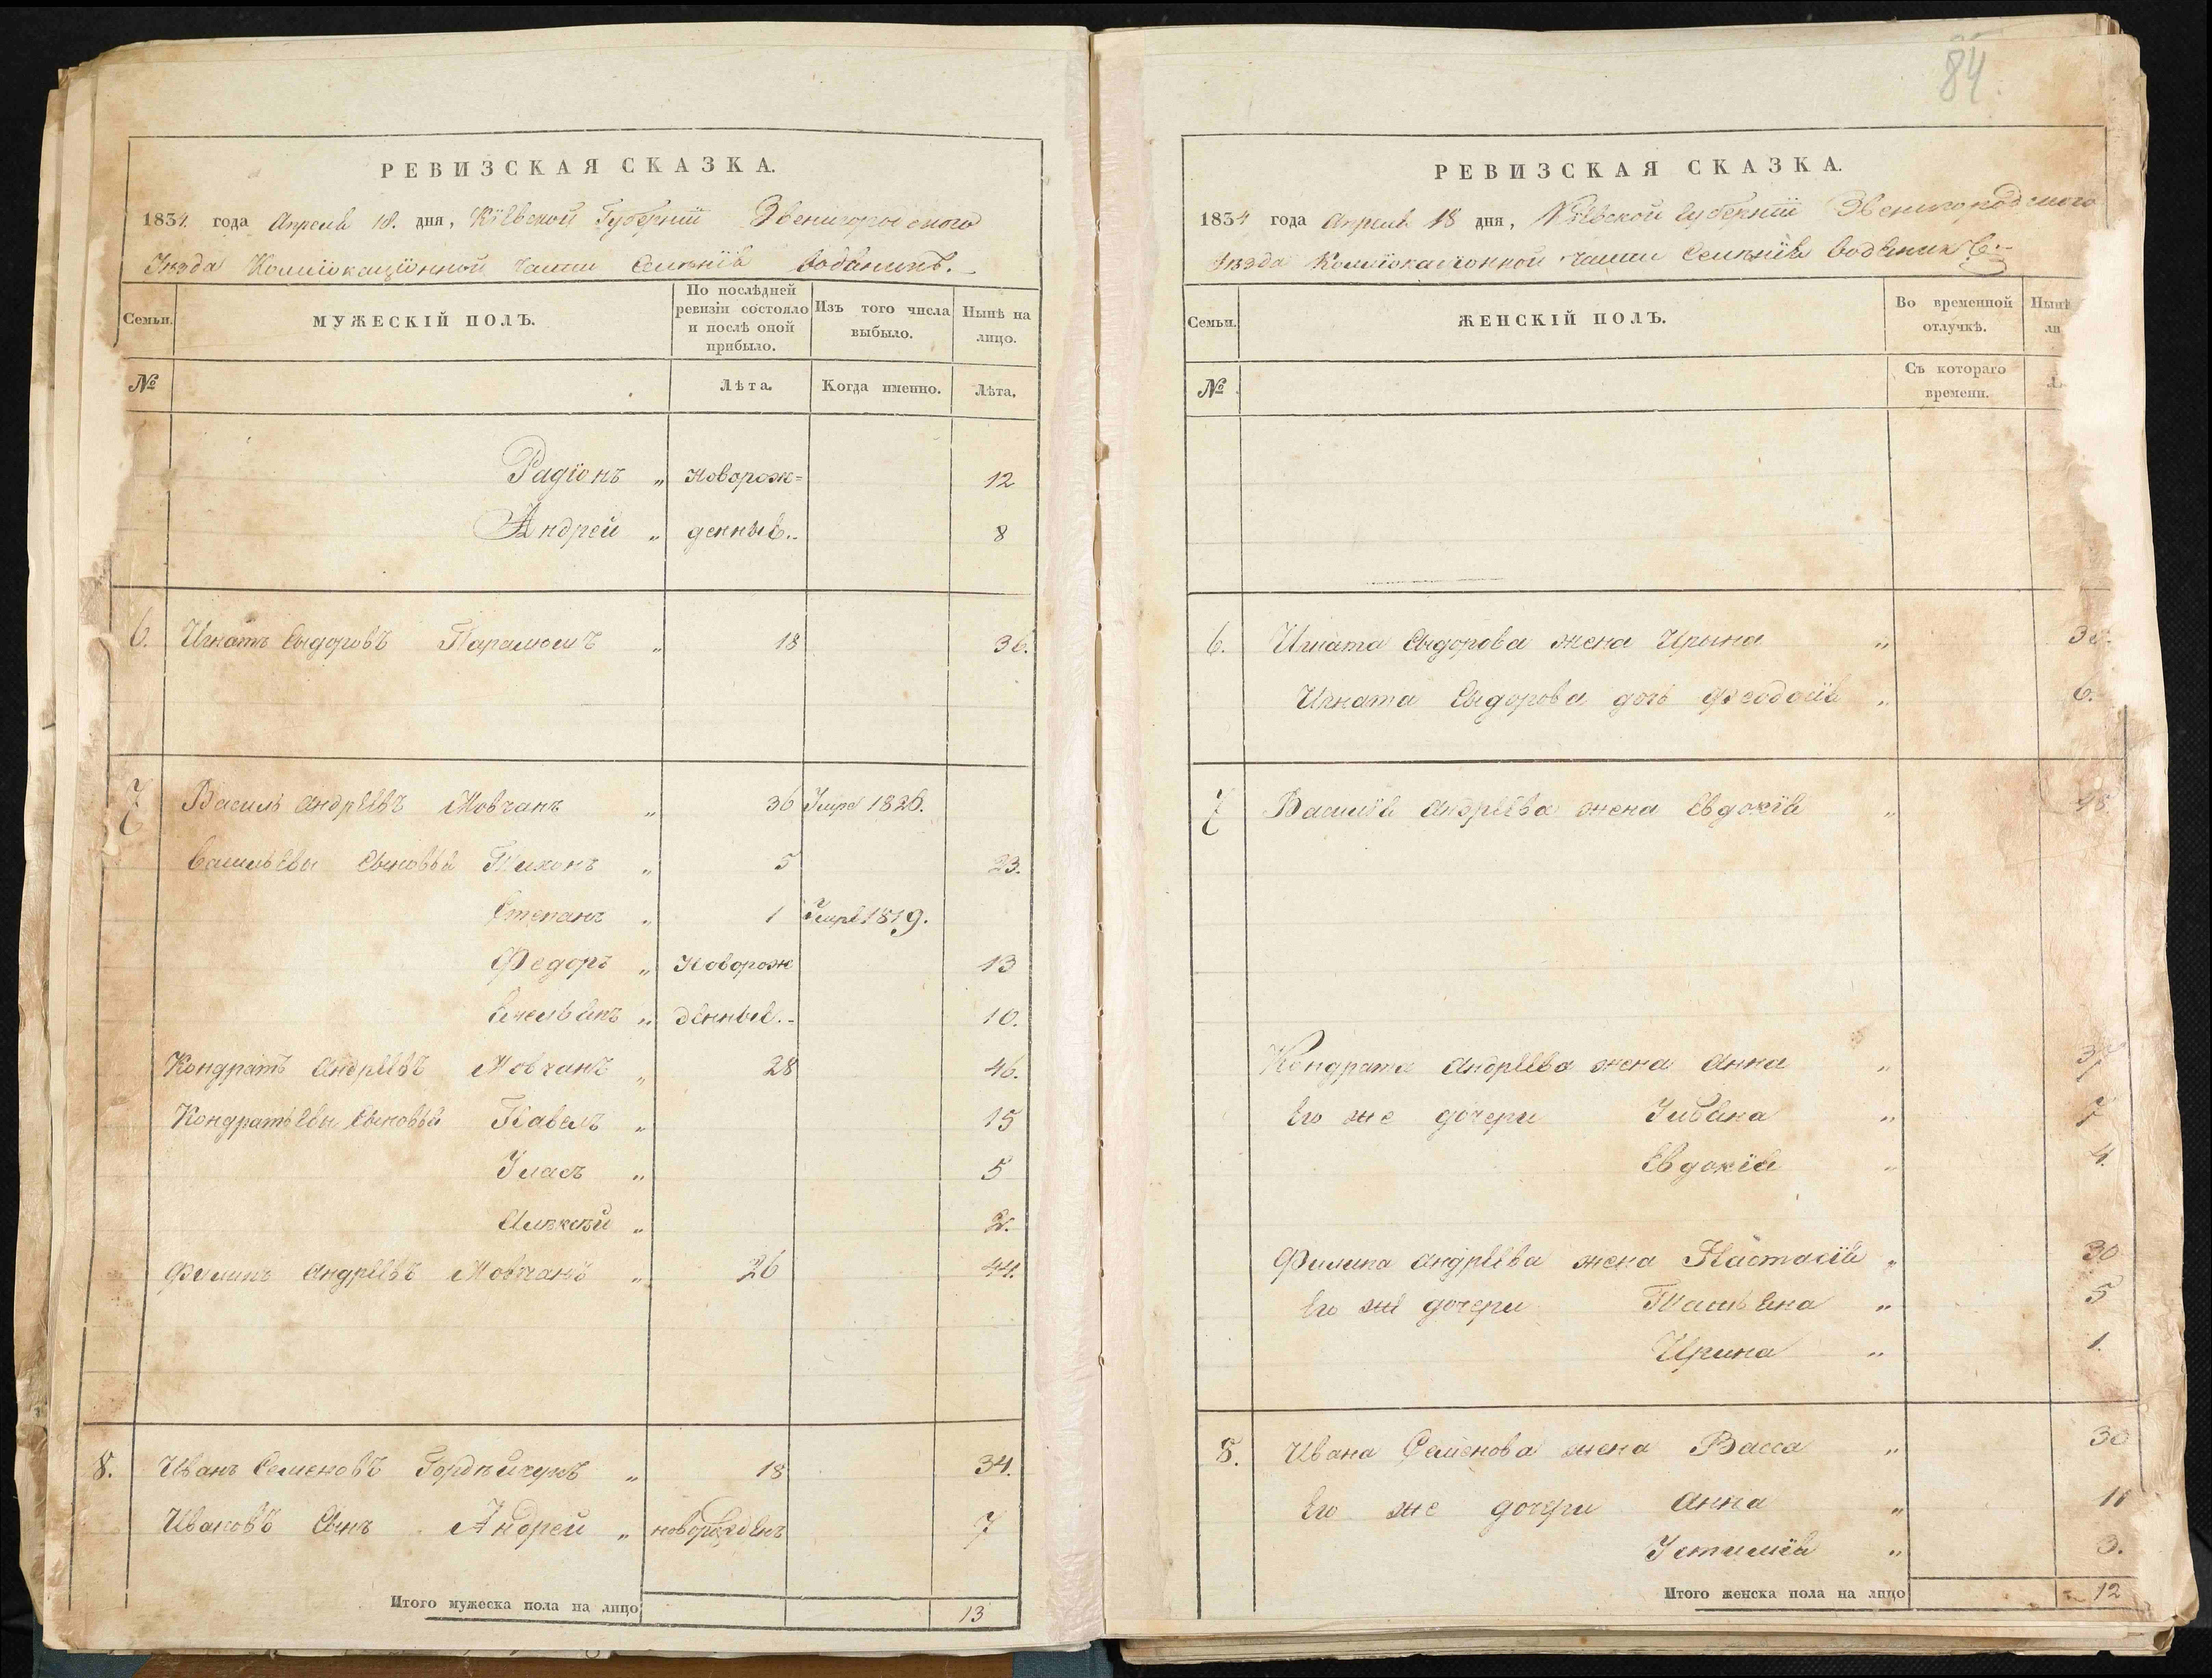 84.
РЕВИЗСКАЯ СКАЗКА.
1834 года Апреля 18. дня, Кіевской Губерніи Звенигородского
Уезда части Селенія
Семьи. МУЖЕСКІЙ ПОЛЪ. По послѣдней ревизіи состояло и послѣ оной прибыло. Изъ того числа выбыло. Нынѣ на лицо.
№ Лѣта. Когда именно. Лѣта.
Радіонъ „ Новорож= 12
Андрей „ денныя.. 8
6. Игнатъ Сыдоровъ „ 18 36.
7 Василь Андреевъ Мовчанъ „ 36 Умре 1826.
Васильевы Сыновья Тихонъ „ 5 23.
Степанъ „ 1 Умре 1819.
Федоръ „ Новорож 13
Емельянъ „ денные.- 10.
Кондратъ Андреевъ Мовчанъ „ 28 46.
Кондратьевы Сыновья Павелъ „ 15
Уласъ „ 5
Алексѣй „ 2.
Филипъ Андреевъ Мовчанъ „ 26 44.
8. Иванъ Семеновъ Гордѣйчукъ „ 18 34.
Ивановъ Сынъ Андрей „ новорожденъ 7
Итого мужеска пола на лицо 13
РЕВИЗСКАЯ СКАЗКА.
1834 года Апреля 18 дня, Кіевской Губерніи Звенигородского
Уезда части Селенія
Семьи. ЖЕНСКІЙ ПОЛЪ. Во временной отлучкѣ. Нынѣ
№ Съ котораго времени.
6. Игната Сыдорова жена Ирына „
Игната Сыдорова дочь Феодосія „ 6.
7 Василія Андреева жена Евдокія „
Кондрата Андреева жена Анна „ 37
Его же дочери Ульяна „ 7
Евдокія „ 4.
Филипа Андреева жена Настасія „ 30
Его же дочери Татьяна „ 5
Ирина „ 1.
8. Ивана Семенова жена Васса „ 30
Его же дочери Анна „ 11
Устимія „ 3.
Итого женска пола на лицо 12